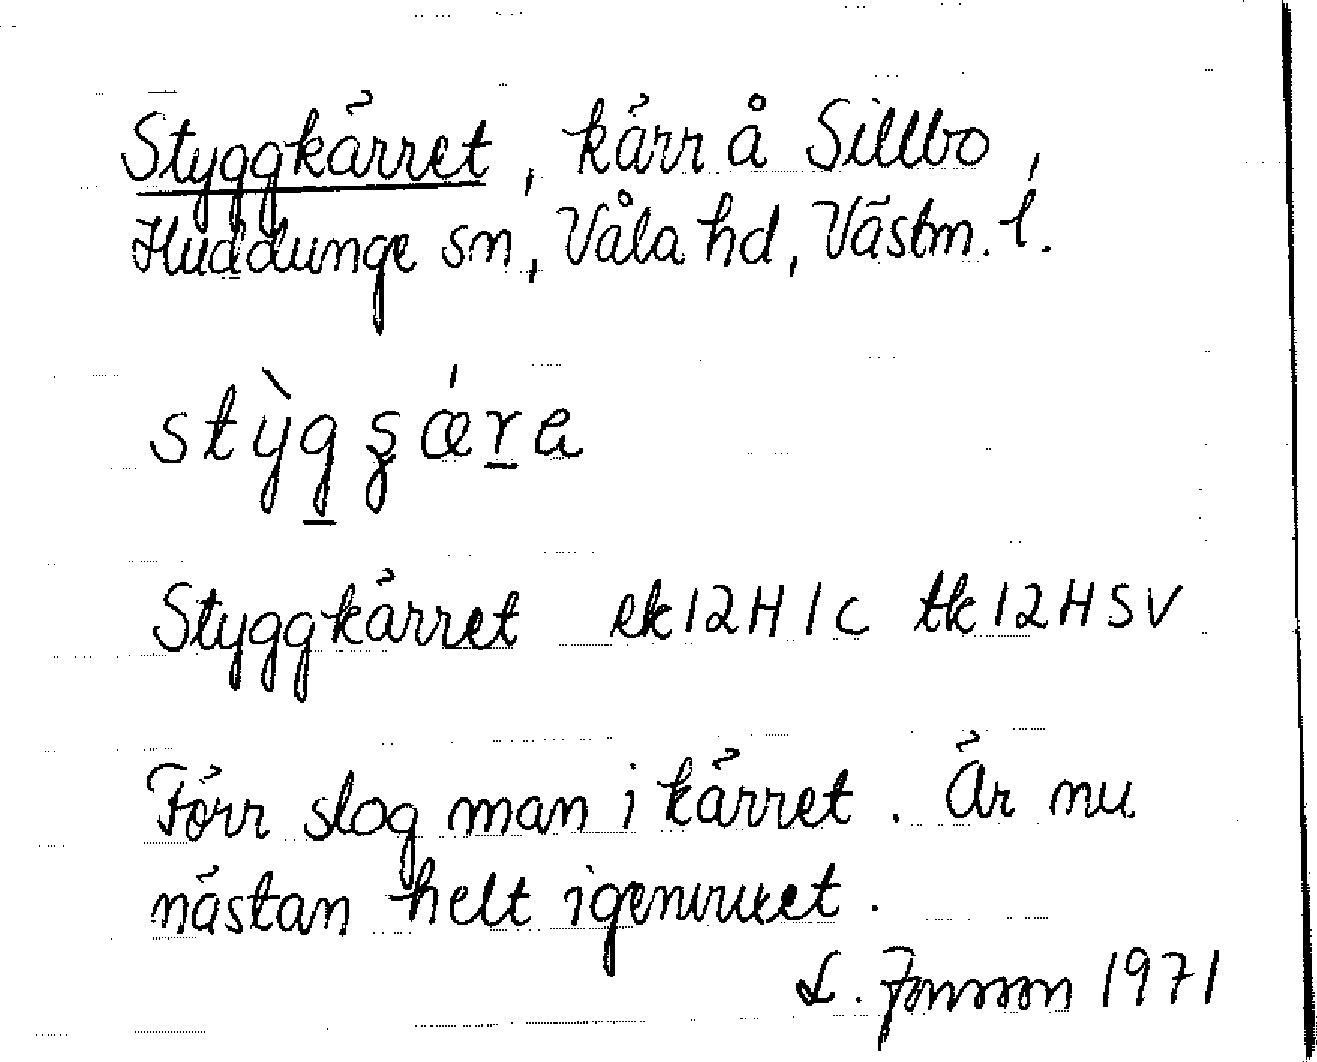 Styggkärret, kärr å Sillbo,
Huddunge sn, Våla hd, Västm. l.
stỳg̲ʂǽr̲a
Styggkärret ek 12H 1c tk 12H SV
Förr slog man i kärret. Är nu
nästan helt igenvuxet.
L. Jonsson 1971